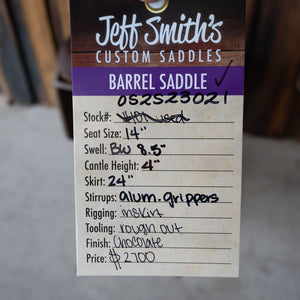 Jeff Smith's
CUSTOM SADDLES
BARREL SADDLE ✓
052523021
Stock#: used
Seat Size: 14"
Swell: BW 8.5"
Cantle Height: 4"
Skirt: 24"
Stirrups: alum. grippers
Rigging: inskirt
Tooling: rough out
Finish: Chocolate
Price: $2700